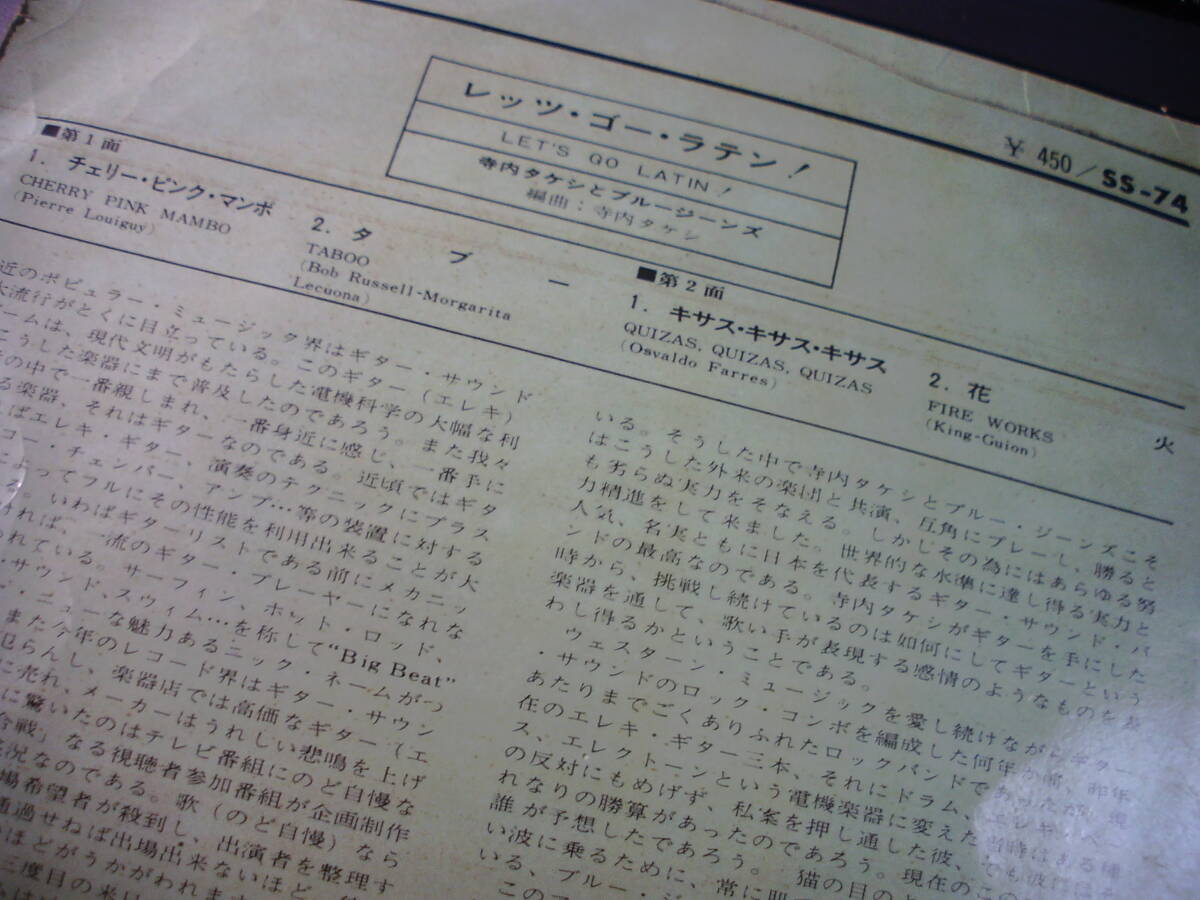 レッツ・ゴー・ラテン!
LET'S GO LATIN!
寺内タケシとブルージーンズ
編曲:寺内タケシ
¥ 450/SS-74
■第1面
1. チェリー・ピンク・マンボ
CHERRY PINK MAMBO
(Pierre Louiguy)
2. タブー
TABOO
(Bob Russell-Morgarita
Lecuona)
■第2面
1. キサス・キサス・キサス
QUIZAS, QUIZAS, QUIZAS
(Osvaldo Farres)
2. 花火
FIRE WORKS
(King-Guion)
近のポピュラー・ミュージック界はギター・サウンド
大流行がとくに目立っている。このギター(エレキ)
ームは、現代文明がもたらした電機科学の大幅な利
こうした楽器にまで普及したのであろう。また我々
の中で一番親しまれ、一番身近に感じ、一番手に
る楽器、それはギターなのである。近頃ではギタ
ばエレキ・ギター、演奏のテクニックにプラス
コー・チェンバー、アンプ…等の装置に対する
よってフルにその性能を利用出来ることが大
る。いわばギターリストである前にメカニッ
ければ、一流のギター・プレーヤーになれな
れている。サーフィン、ホット・ロッド、
・サウンド、スウィム…を称して“Big Beat”
・ニューな魅力あるニック・ネームがつ
また今年のレコード界はギター・サウン
氾らんし、楽器店では高価なギター(エ
に売れ、メーカーはうれしい悲鳴を上げ
に驚いたのはテレビ番組にのど自慢な
合戦」なる視聴者参加番組が企画制作
況なのである。歌(のど自慢)なら
場希望者が殺到し、出演者を整理す
通過せねば出場出来ないほど
ほどがうかがわれます
三度目の来日
いる。そうした中で寺内タケシとブルー・ジーンズこそ
はこうした外来の楽団と共演、互角にプレーし、勝ると
も劣らぬ実力をそなえる。しかしその為にはあらゆる努
力精進をして来ました。世界的な水準に達し得る実力と
人気、名実ともに日本を代表するギター・サウンド・バ
ンドの最高なのである。寺内タケシがギターを手にした
時から、挑戦し続けているのは如何にしてギターという
楽器を通して、歌い手が表現する感情のようなものを表
わし得るかということである。
ウェスターン・ミュージックを愛し続けながらギター
・サウンドのロック・コンボを編成した何年か前、昨年
あたりまでごくありふれたロックバンドであったが、現
在のエレキ・ギター三本、それにドラム、エレキ・ベー
ス、エレクトーンという電機楽器に変えた当時はある種
の反対にもめげず、私案を押し通した彼、でも彼には
れなりの勝算があったのであろう。現在のこの
誰が予想したであろう。猫の目の
い波に乗るために、常に
いる、ブルー・ジー
この